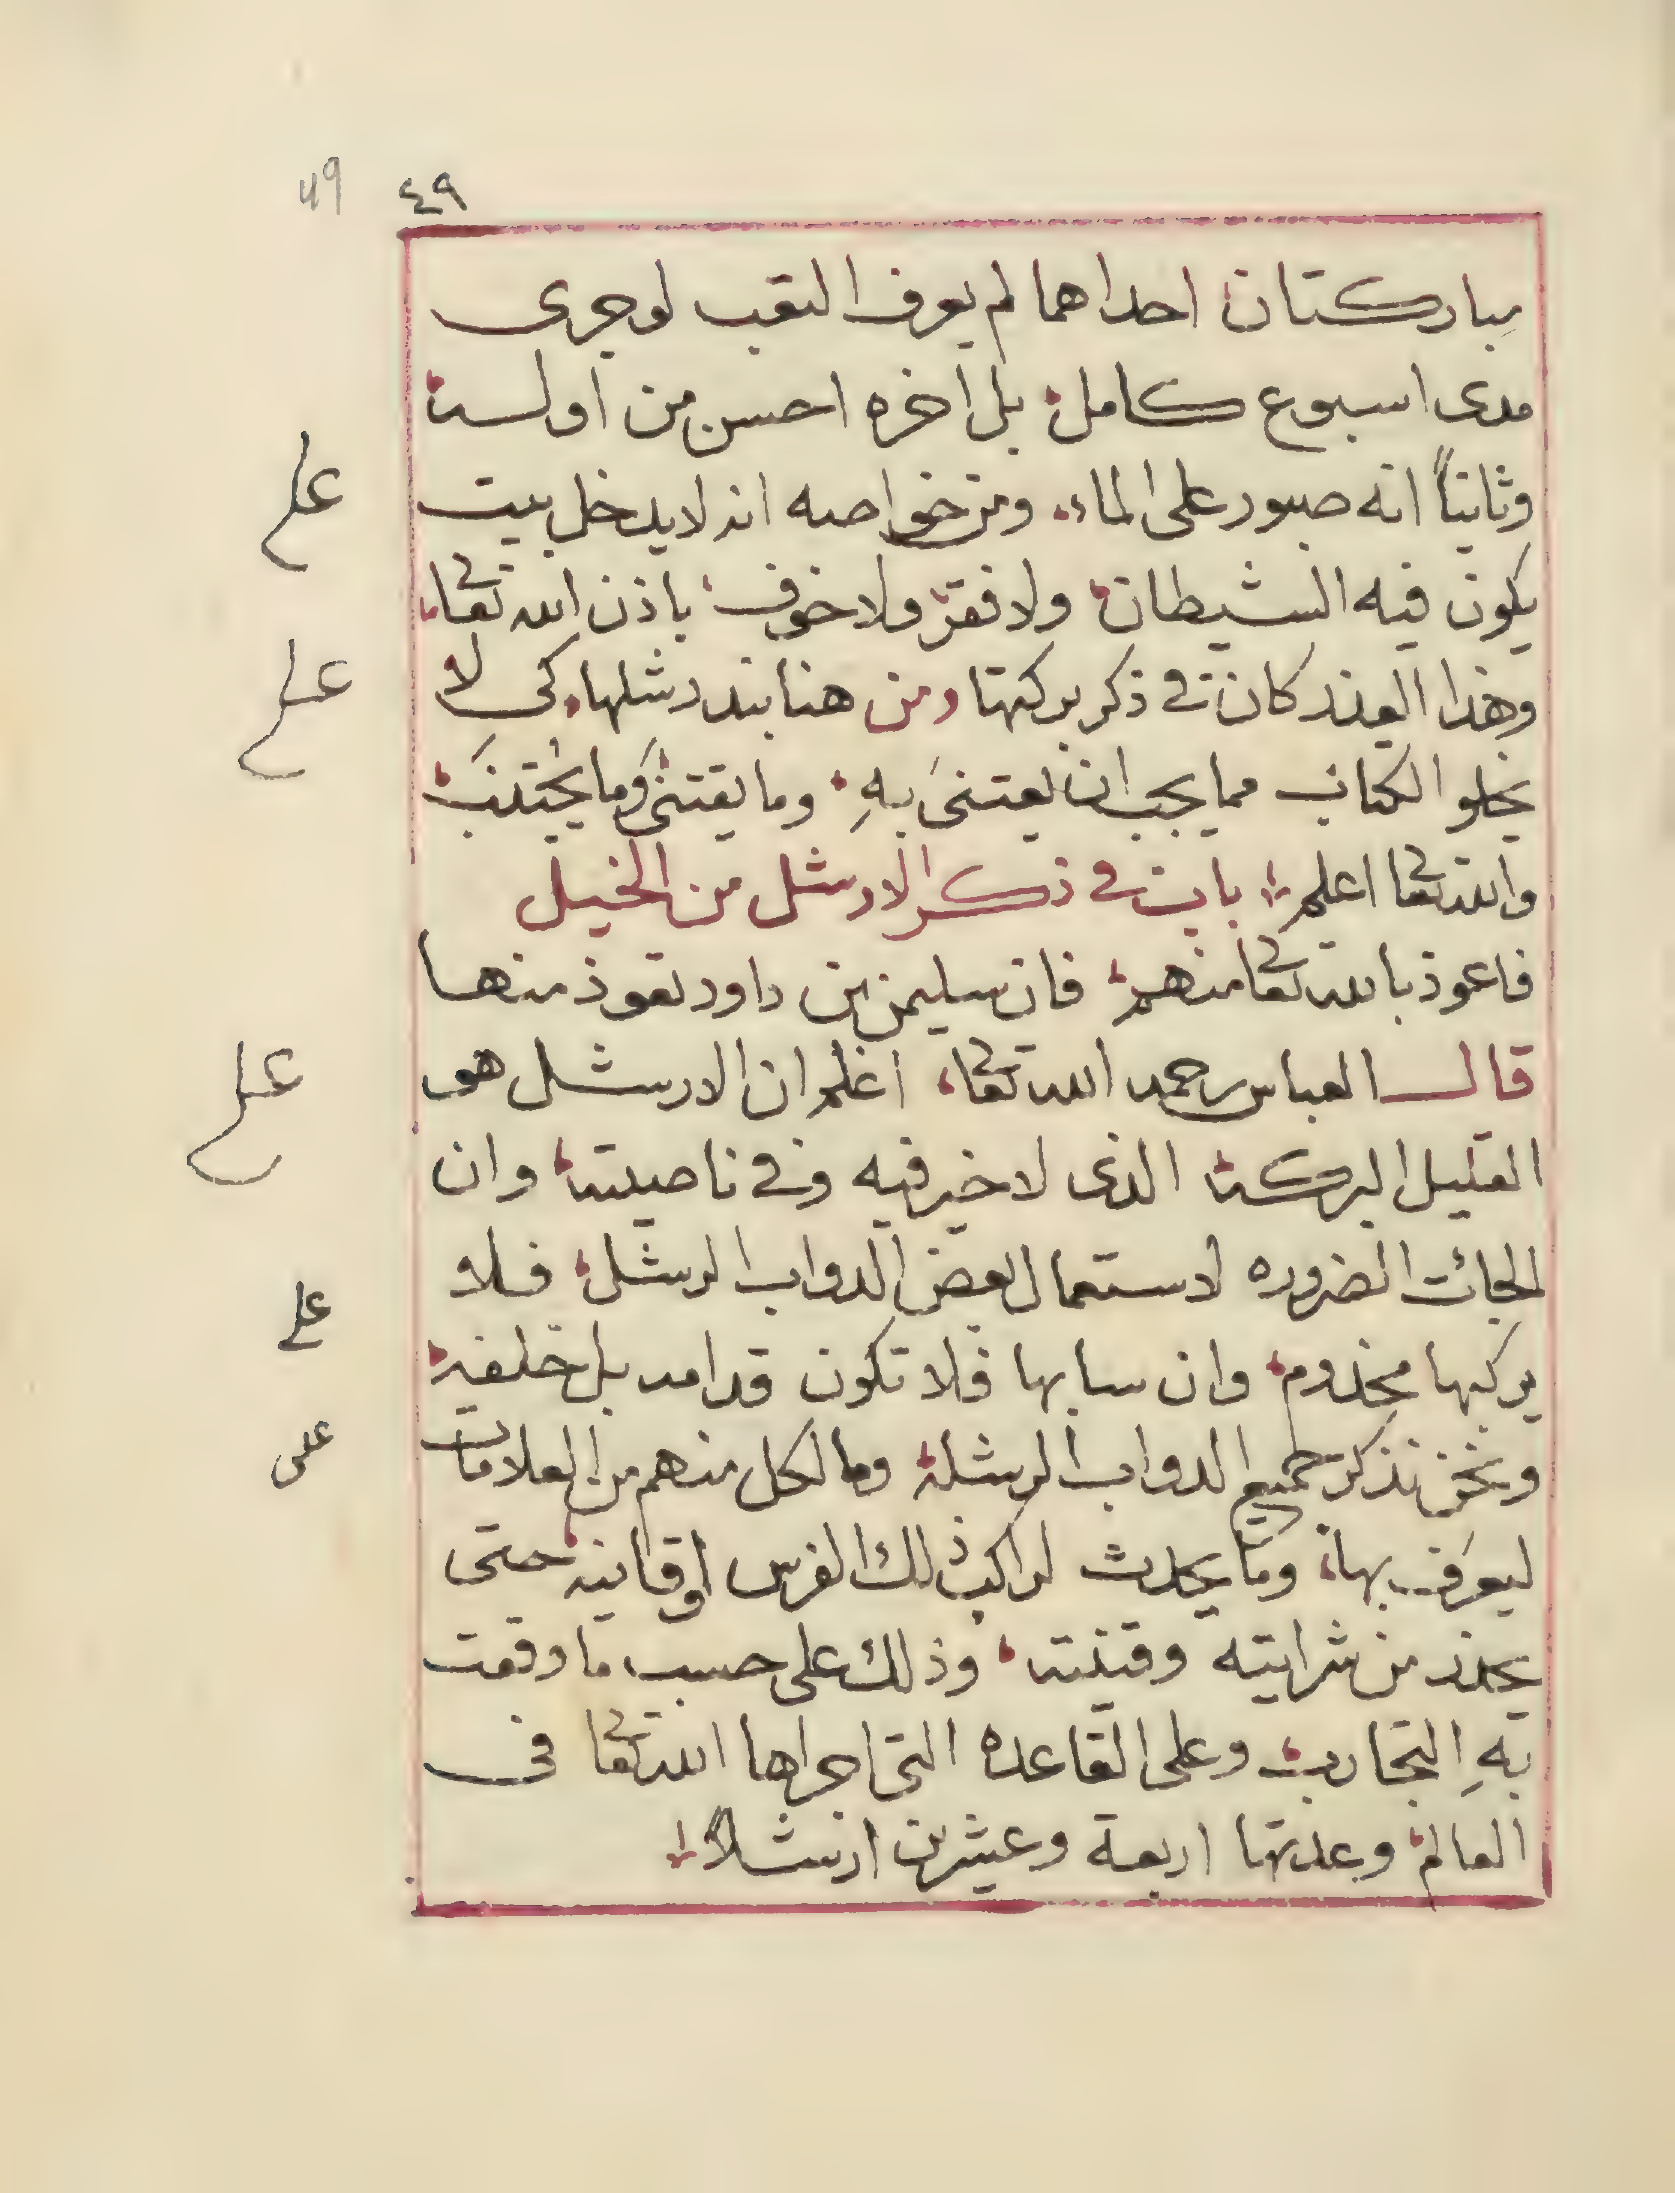 49 ٤٩
مباركتان احداهما لم يعرف التعب لو جرى
مدى اسبوع كامل، بل اخره احسن من اولــه،
وثانياً انه صبور على الماء، ومن خواصه انه لا يدخل بيت
يكون فيه الشيطان، ولا فقر ولا خوف، باذن الله تعا،
وهذا القدر كان في ذكر بركتها ومن هنا رشلها، كي لا
يخلو الكتاب مما يجب ان يعتنى بهِ، وما يقتنى وما يُجتنَب،
والله تعا اعلم، باب في ذكر الارشل من الخيل
فاعوذ بالله تعا منهم، فان سليمن بن داود تعوذ منها
قال العباس رحمه الله تعا، اعلم ان الارشل هو
القليل البركه، الذى لا خير فيه وفي ناصيته، وان
الجائت الضروره لاستعمال بعض الدواب الرشل، فلا
يركبها مجذوم، وان سابها فلا تكون قدامه بل خلفه،
ونحن نذكر جميع الدواب الرشله، وما لكل منهم من العلامات
ليعرَف بها، وما يحدث لراكب ذلك الفرس او قانيه، حتى
يحذر من شرايته وقنيته، وذلك على حسب ما وقعت
بهِ التجارب، وعلى القاعده التى اجراها الله تعا فى
العالم، وعدتها اربعة وعشرين ارشلاً